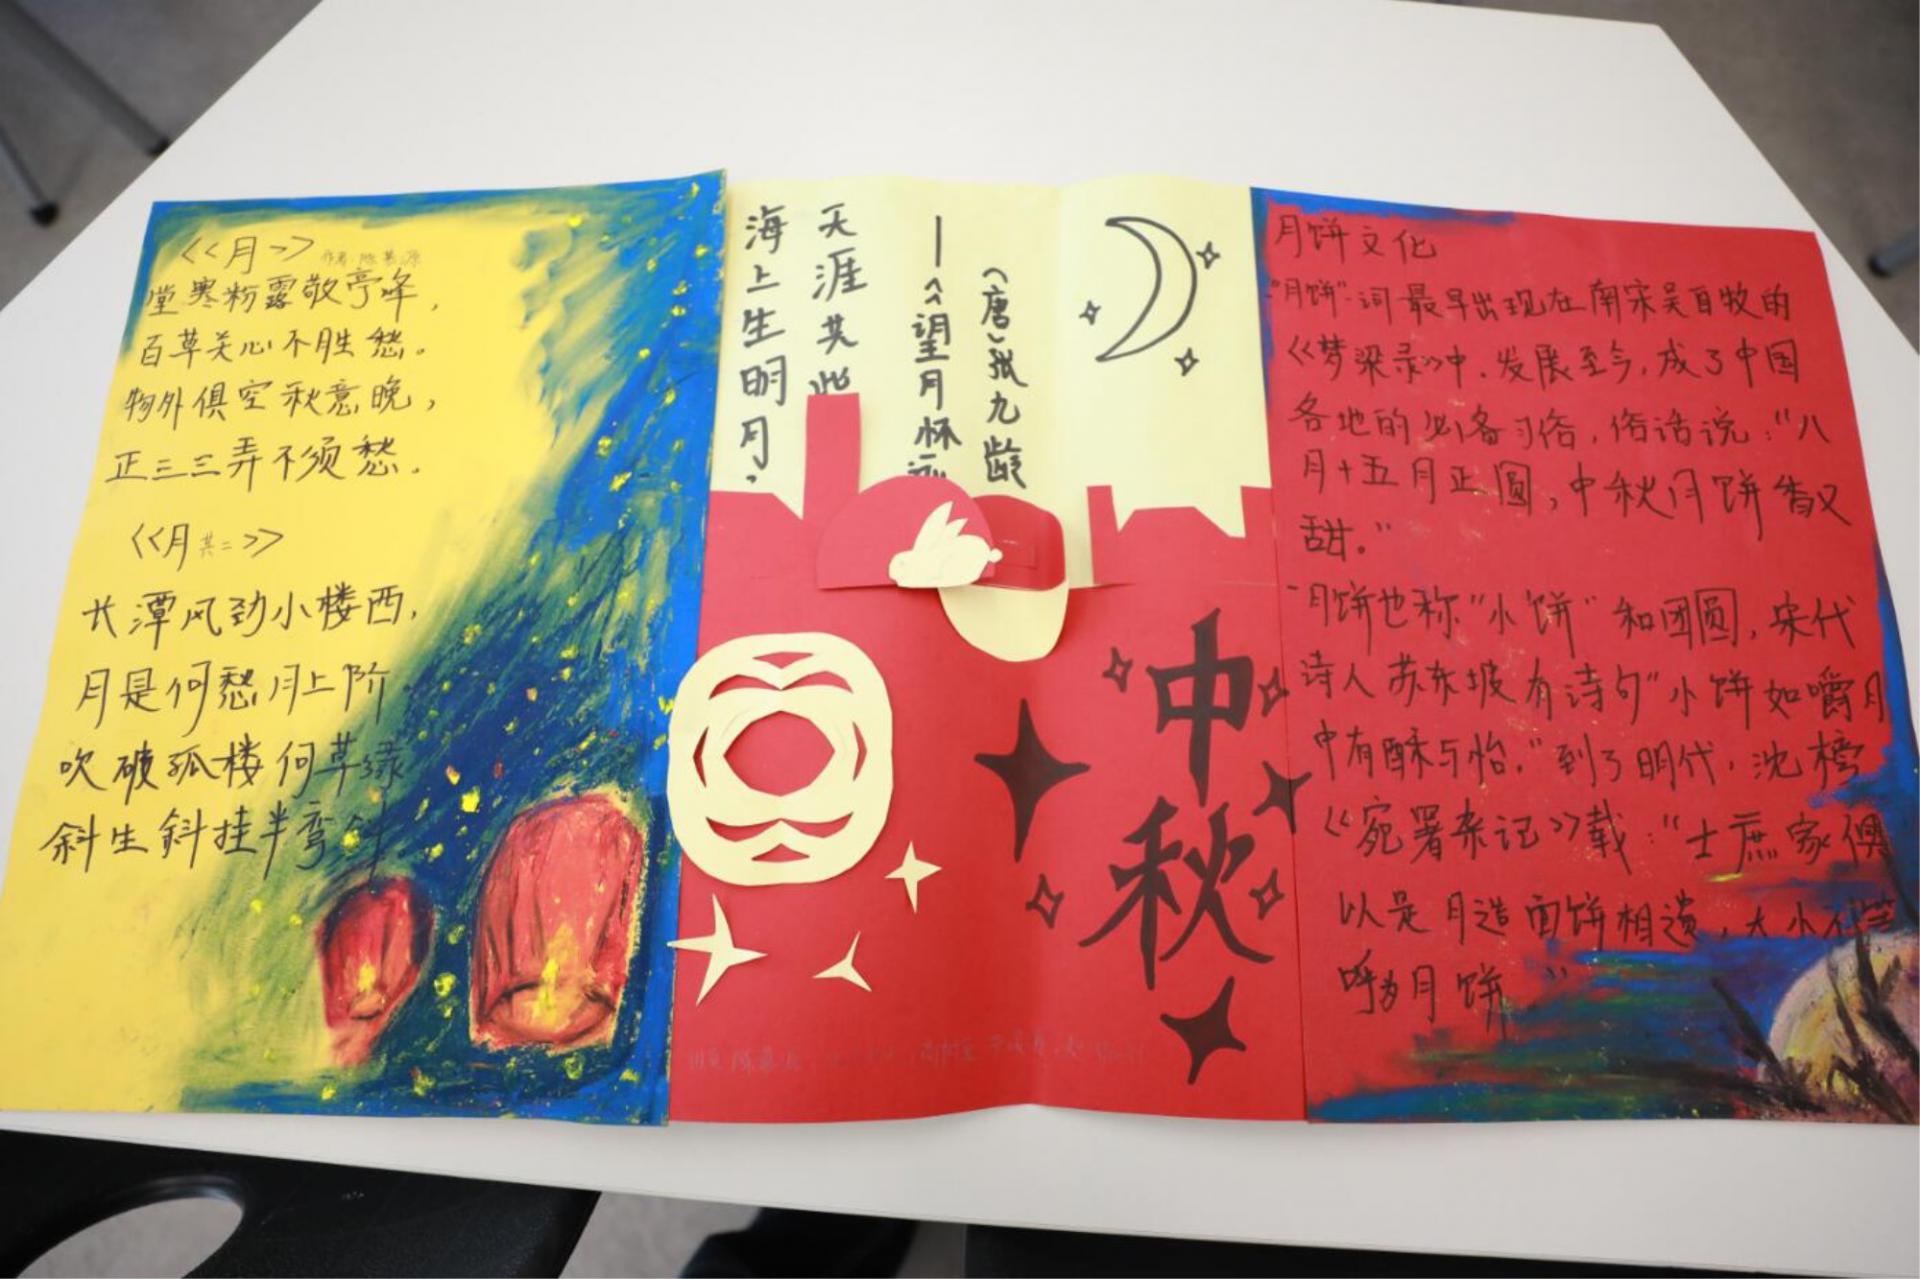 《月》
作者:陈慕源
堂寒粉露敬亭峰,
百草关心不胜愁。
物外俱空秋意晚,
正三三弄不须愁.
《月其二》
长潭风劲小楼西,
月是何愁月上阶
吹破孤楼何草绿
斜生斜挂半弯
海上生明月,
天涯共此
—《望月怀远
(唐)张九龄
中秋
月饼文化
"月饼"一词最早出现在南宋吴自牧的
《梦梁录》中.发展至今,成了中国
各地的必备习俗,俗话说:"八
月十五月正圆,中秋月饼香又
甜。"
月饼也称"小饼"和团圆,宋代
诗人苏东坡有诗句"小饼如嚼月
中有酥与怡."到了明代,沈榜
《宛署杂记》载:"士庶家俱
以是月造面饼相遗,大小不等
呼为月饼"